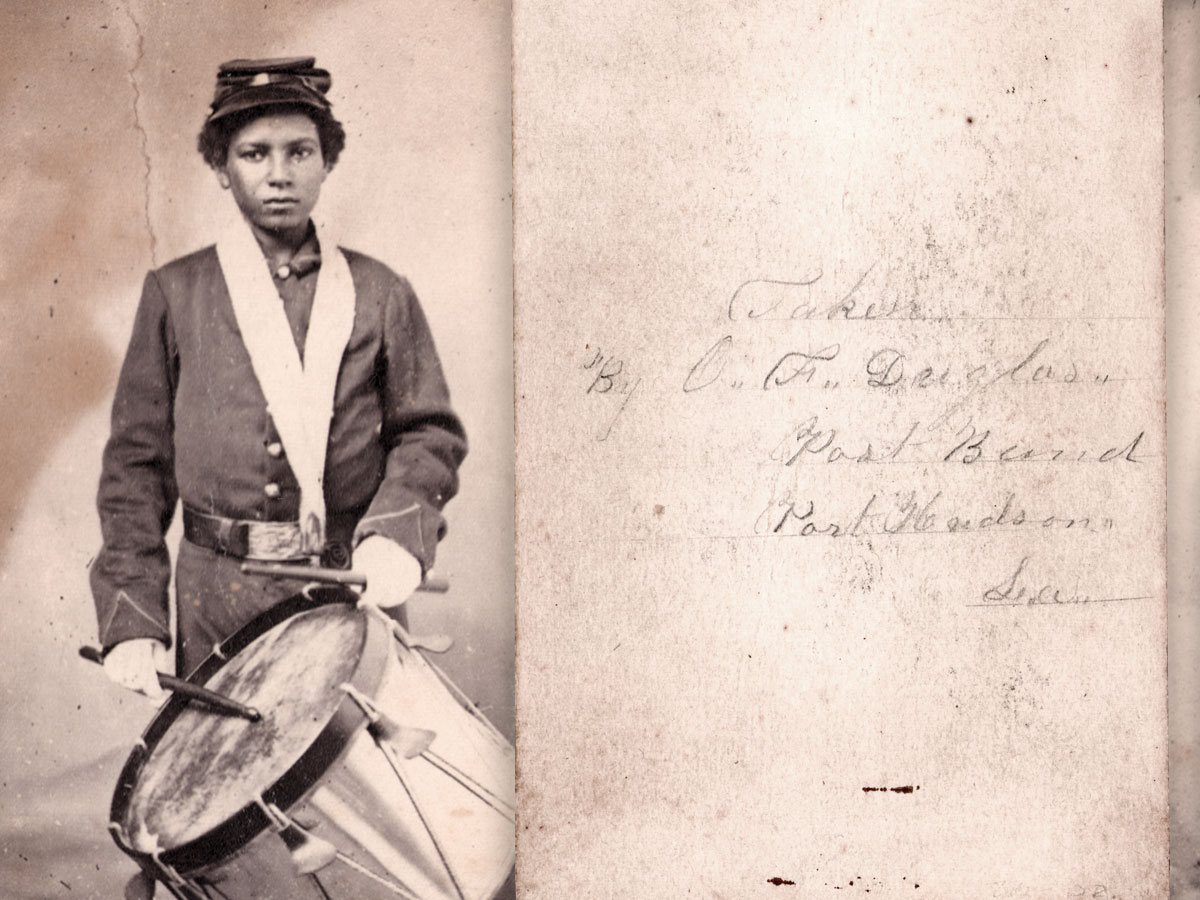 Taken
By O.. F.. Duglas..
Post Band
Port Hudson..
La..